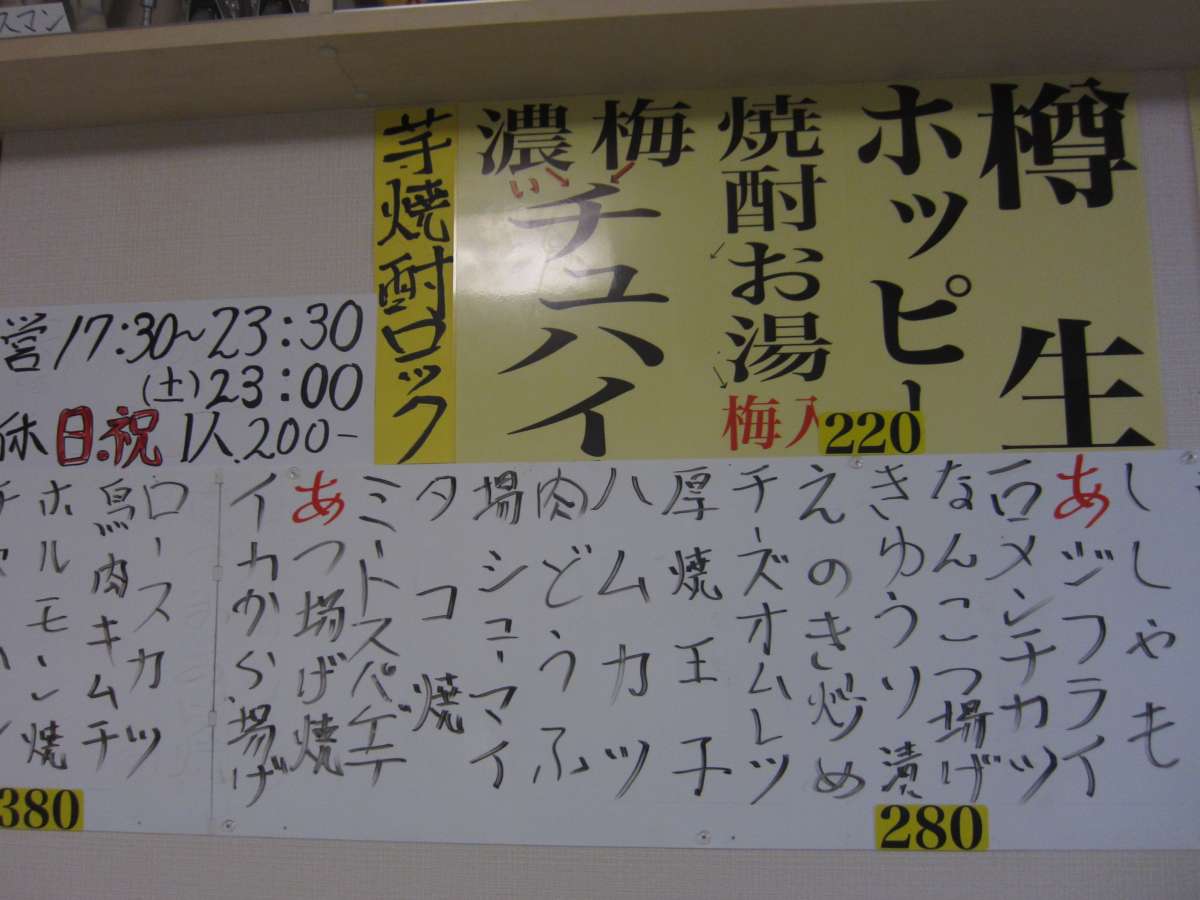 スマン
樽生
ホッピー
焼酎お湯
梅入
220
梅
濃い
チュハイ
芋焼酎ロック
営17:30~23:30
(土)23:00
休日.祝 1人200-
ししゃも
あジフライ
メンチカツ
なんこつ揚げ
きゅうり漬
えのき炒め
チーズオムレツ
厚焼玉子
ハムカツ
肉どうふ
揚シューマイ
タコ焼
ミートスパゲテ
あつ揚げ焼
イカから揚げ
280
ロースカツ
鳥肉キムチ
ホルモン焼
380